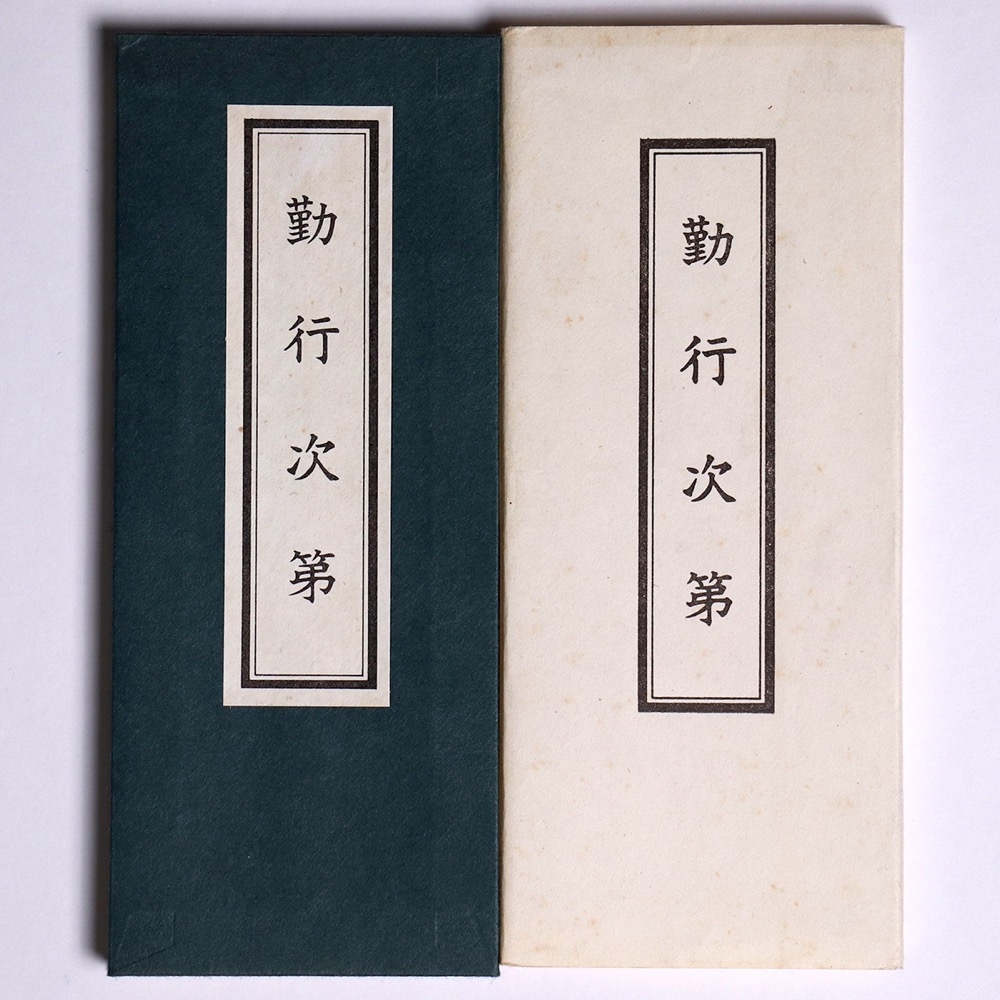 勤行次第
勤行次第